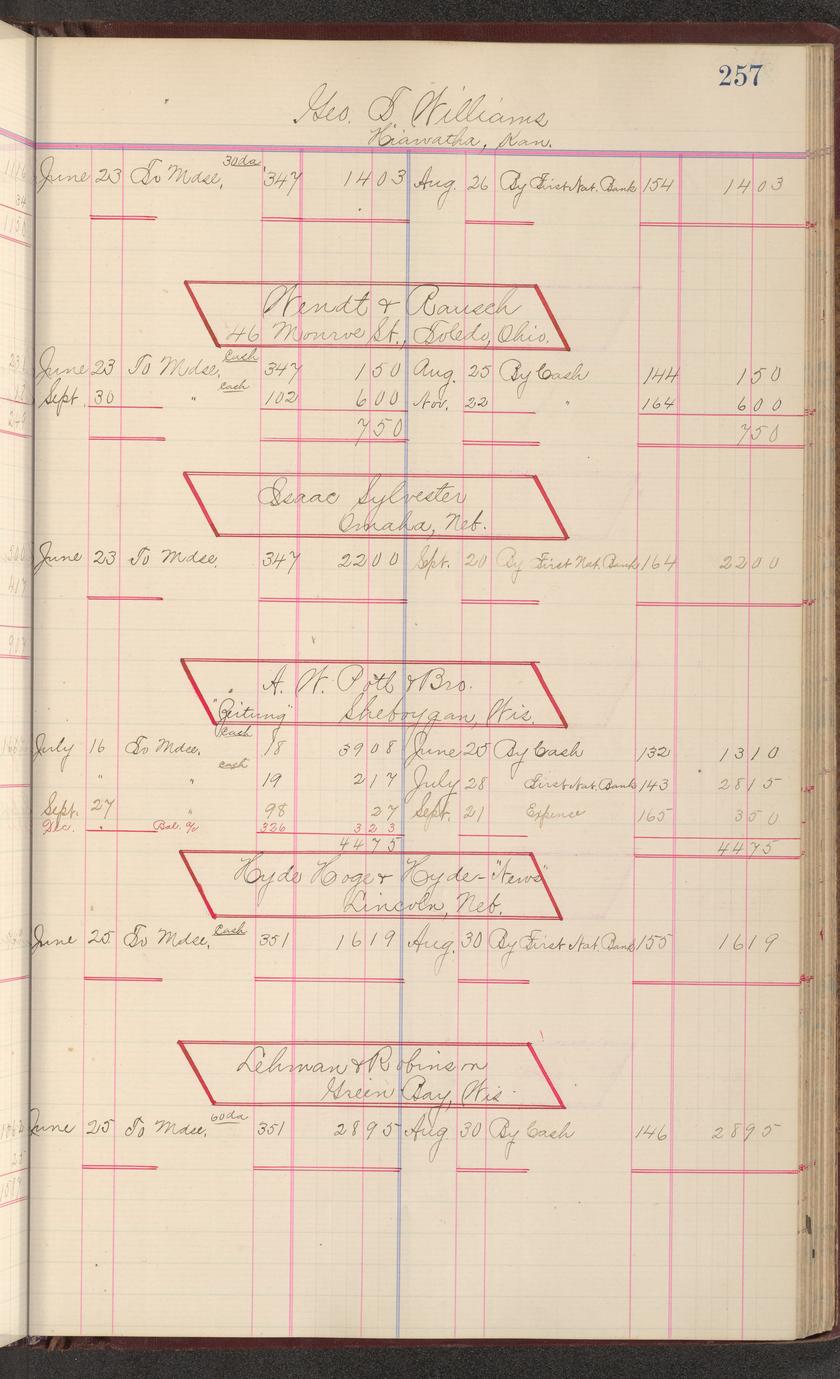 257
Geo. T. Williams
Hiawatha, Kan.
June 23 To Mdse, 30da 347 14 03 Aug. 26 By First Nat. Bank 154 14 03
Wendt & Rausch
46 Monroe St., Toledo, Ohio.
June 23 To Mdse, Cash 347 1 50 Aug. 25 By Cash 144 1 50
Sept. 30 " cash 102 6 00 Nov. 22 " 164 6 00
7 50 7 50
Isaac Sylvester
Omaha, Neb.
June 23 To Mdse, 347 22 00 Sept. 20 By First Nat. Bank 164 22 00
A. W. Pott & Bro.
"Zeitung" Sheboygan, Wis.
July 16 To Mdse, cash 18 39 08 June 25 By Cash 132 13 10
" " cash 19 2 17 July 28 First Nat. Bank 143 28 15
Sept. 27 " 98 27 Sept. 21 Expense 165 3 50
Dec. " Bal. % 326 3 23
44 75 44 75
Hyde Hoge & Hyde - "News"
Lincoln, Neb.
June 25 To Mdse, Cash 351 16 19 Aug. 30 By First Nat. Bank 155 16 19
Lehman & Robinson
Green Bay, Wis
June 25 To Mdse, 60da 351 28 95 Aug 30 By Cash 146 28 95